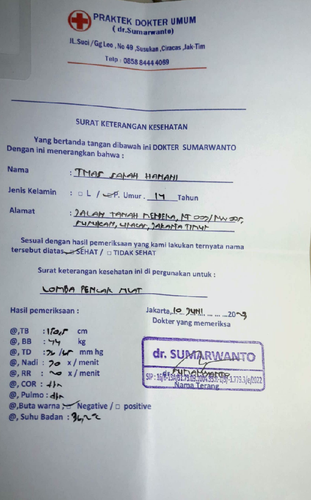 PRAKTEK DOKTER UMUM
( dr.Sumarwanto)
JL.Suci / Gg Leo , No 49 ,Susukan ,Ciracas ,Jak-Tim
Telp : 0858 8444 4069
SURAT KETERANGAN KESEHATAN
Yang bertanda tangan dibawah ini DOKTER SUMARWANTO
Dengan ini menerangkan bahwa :
Nama :
Jenis Kelamin : □ L / P. Umur . 14 Tahun
Alamat : JALAN TANAH MERDEKA, RT
JAKARTA TIMUR
Sesuai dengan hasil pemeriksaan yang kami lakukan ternyata nama
tersebut diatas SEHAT / □ TIDAK SEHAT
Surat keterangan kesehatan ini di pergunakan untuk :
LOMBA PENCAK SILAT
Hasil pemeriksaan : Jakarta, 10 JUNI 20
Dokter yang memeriksa
@,TB : cm
@, BB : 44 kg
@, TD : mm hg
@, Nadi : x / menit
@, RR : 20 x / menit
@, COR :
@, Pulmo :
@,Buta warna Negative / □ positive
@, Suhu Badan :
dr. SUMARWANTO
Nama Terang